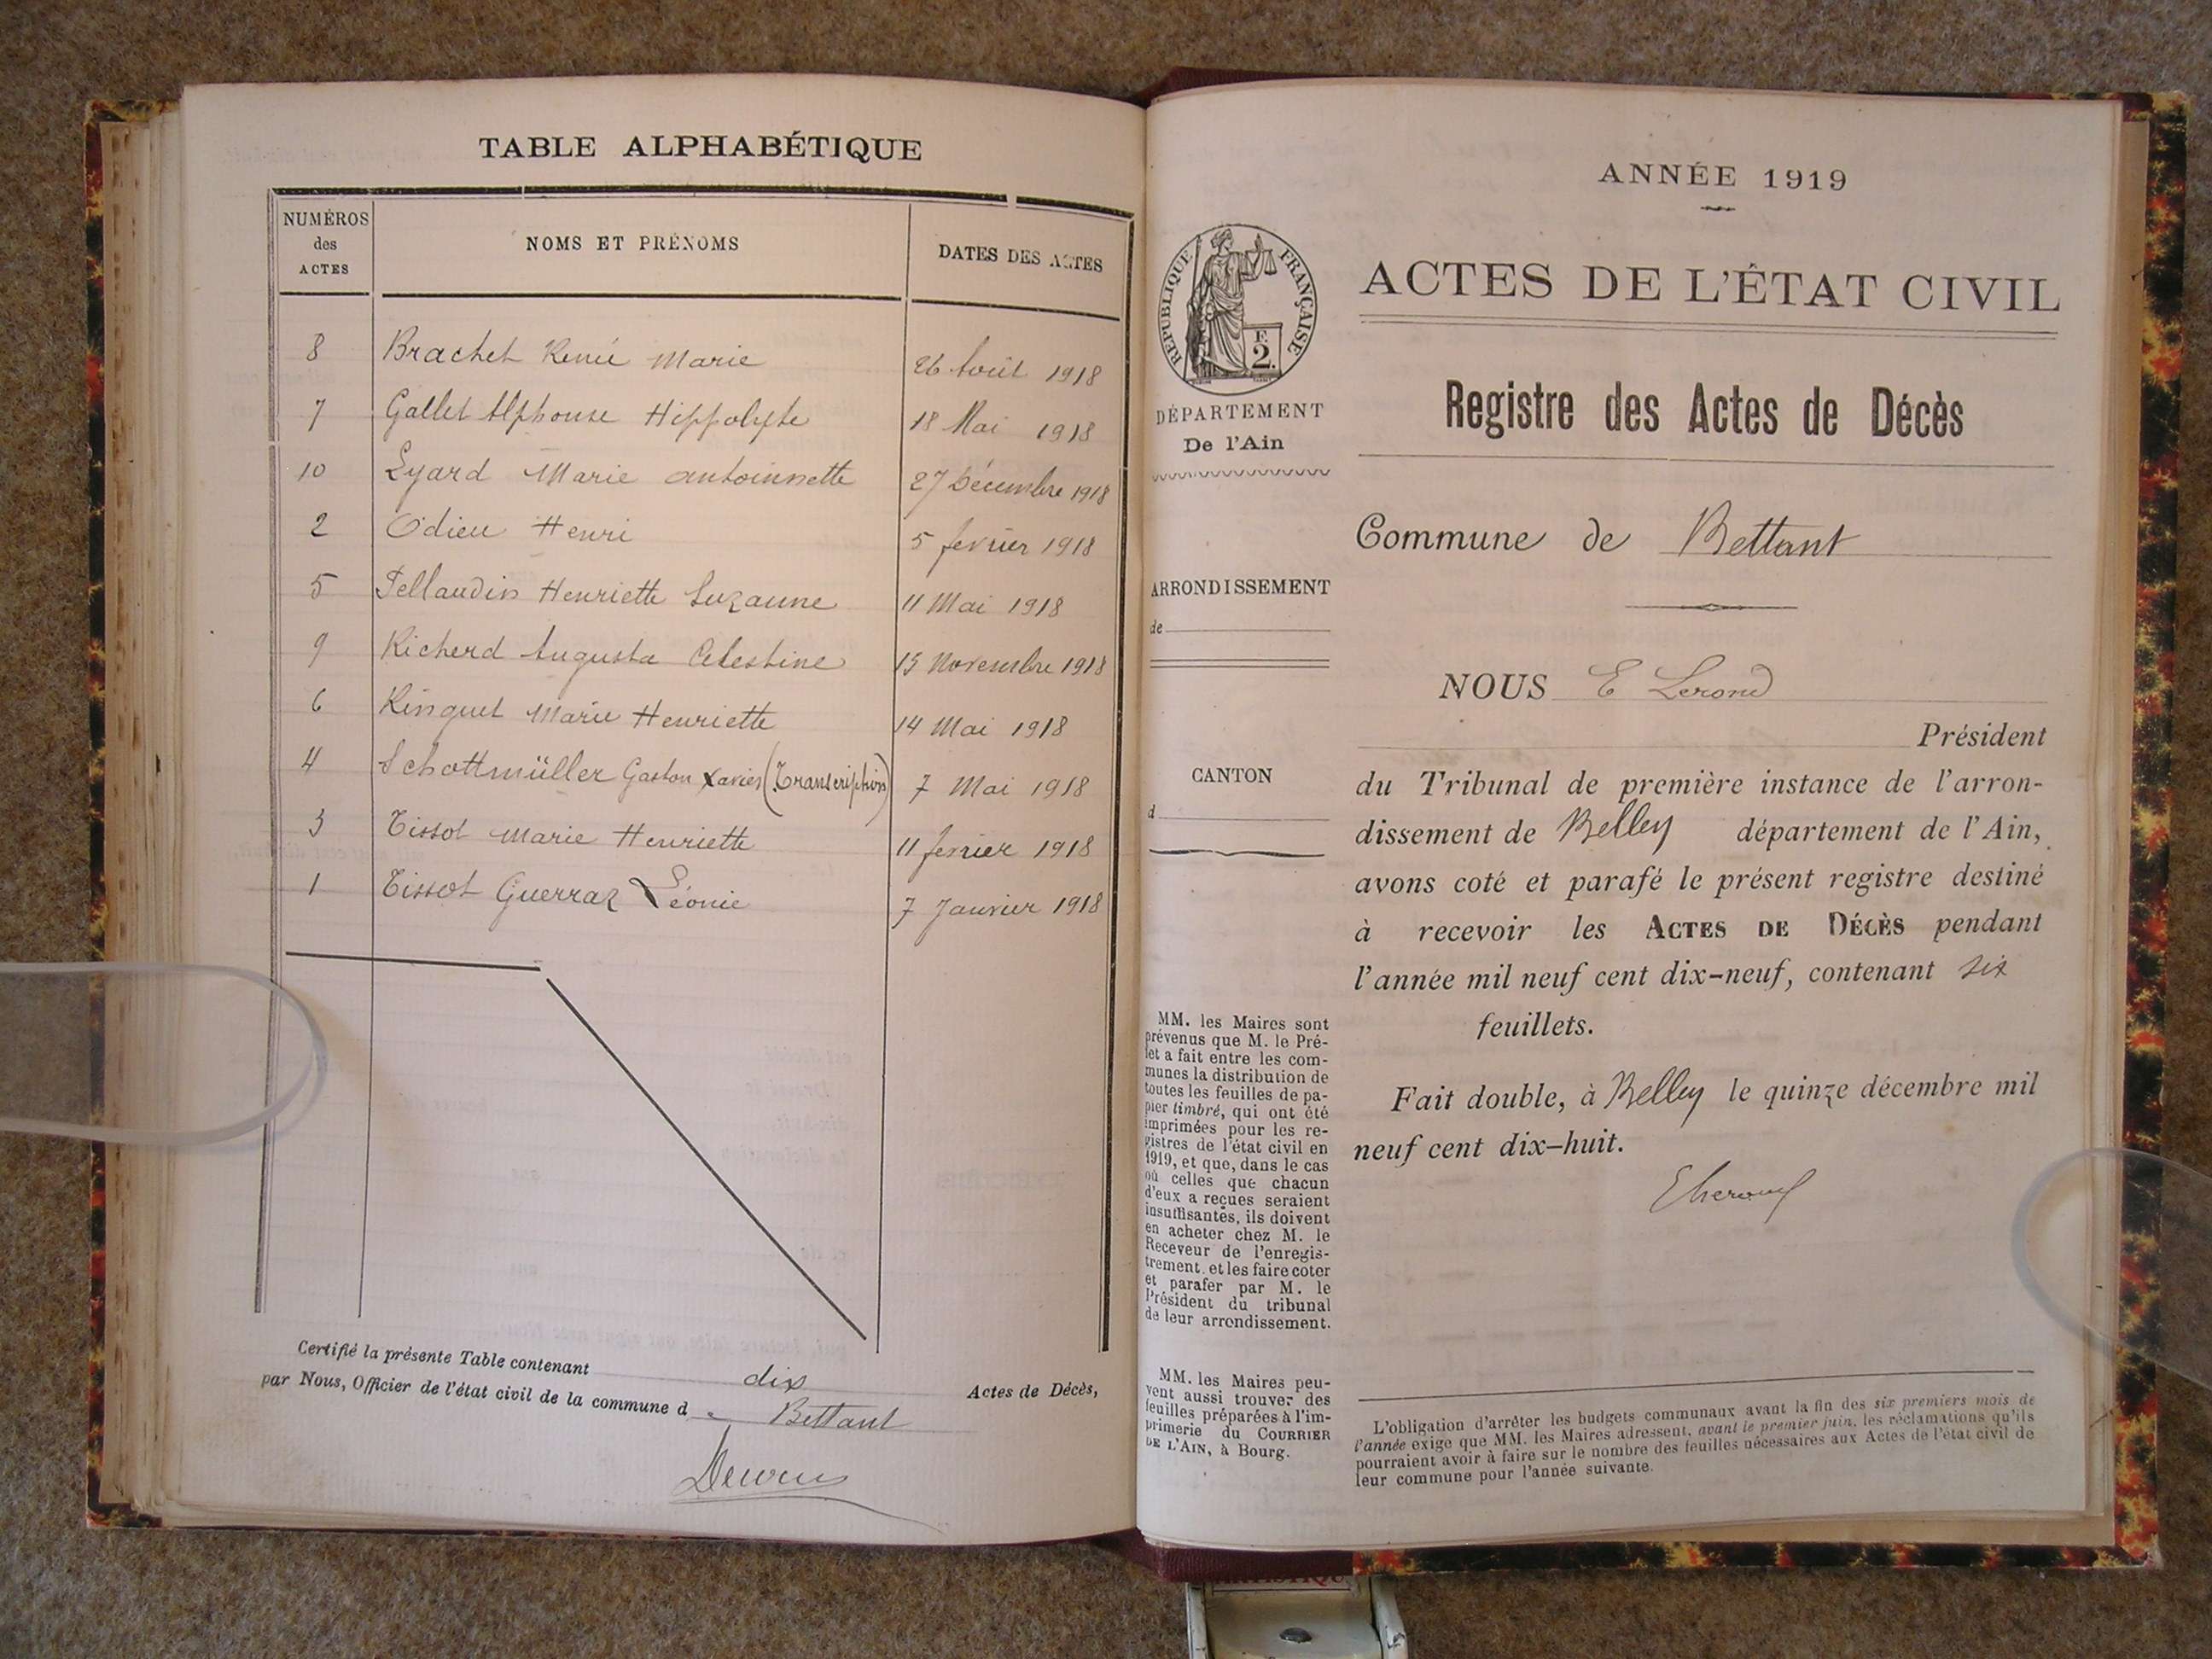 TABLE ALPHABÉTIQUE
NUMÉROS des ACTES NOMS ET PRÉNOMS DATES DES ACTES
8 Brachet René Marie 26 Août 1918
7 Gallet Alphonse Hippolyte 18 Mai 1918
10 Lyard Marie antoinnette 27 Décembre 1918
2 Odieu Henri 5 fevrier 1918
5 Pellaudin Henriette Suzanne 11 Mai 1918
9 Richerd Augusta Celestine 15 Novembre 1918
6 Ringuet Marie Henriette 14 Mai 1918
4 Schottmüller Gaston Xavier (Transcription) 7 Mai 1918
3 Tissot Marie Henriette 11 fevrier 1918
1 Tissot Guerraz Léonie 7 Janvier 1918
Certifié la présente Table contenant dix Actes de Décès,
par Nous, Officier de l'état civil de la commune de Bettant
ANNÉE 1919
RÉPUBLIQUE FRANÇAISE
F.
2.
DÉPARTEMENT
De l'Ain
ARRONDISSEMENT
de
CANTON
d
MM. les Maires sont
prévenus que M. le Pré-
fet a fait entre les com-
munes la distribution de
toutes les feuilles de pa-
pier timbré, qui ont été
imprimées pour les re-
gistres de l'état civil en
1919, et que, dans le cas
où celles que chacun
d'eux a reçues seraient
insuffisantes, ils doivent
en acheter chez M. le
Receveur de l'enregis-
trement, et les faire coter
et parafer par M. le
Président du tribunal
de leur arrondissement.
MM. les Maires peu-
vent aussi trouver des
feuilles préparées à l'im-
primerie du COURRIER
DE L'AIN, à Bourg.
ACTES DE L'ÉTAT CIVIL
Registre des Actes de Décès
Commune de Bettant
NOUS E Lerond
Président
du Tribunal de première instance de l'arron-
dissement de Belley département de l'Ain,
avons coté et parafé le présent registre destiné
à recevoir les ACTES DE DÉCÈS pendant
l'année mil neuf cent dix-neuf, contenant six
feuillets.
Fait double, à Belley le quinze décembre mil
neuf cent dix-huit.
L'obligation d'arrêter les budgets communaux avant la fin des six premiers mois de
l'année exige que MM. les Maires adressent, avant le premier juin, les réclamations qu'ils
pourraient avoir à faire sur le nombre des feuilles nécessaires aux Actes de l'état civil de
leur commune pour l'année suivante.